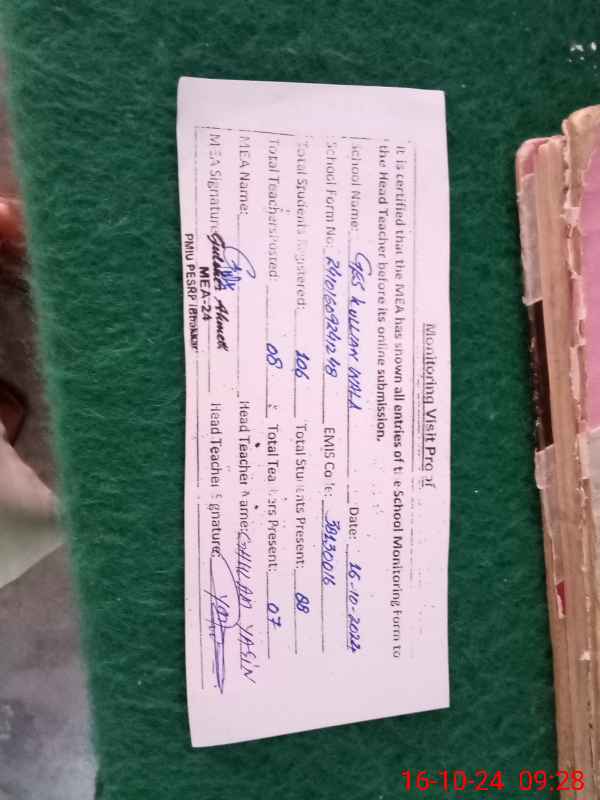 Monitoring Visit Proof
It is certified that the MEA has shown all entries of the School Monitoring Form to
the Head Teacher before its online submission.
School Name: GES KULLIAN WALA Date: 16-10-2024
School Form No: EMIS Code: 38130016
Total Students Registered: 106 Total Students Present: 88
Total Teachers Posted: 08 Total Teachers Present: 07
MEA Name: Head Teacher Name: GHULAM YASIN
MEA Signature: Head Teacher Signature:
MEA-24
PMIU PESRP Bhakkar
16-10-24 09:28